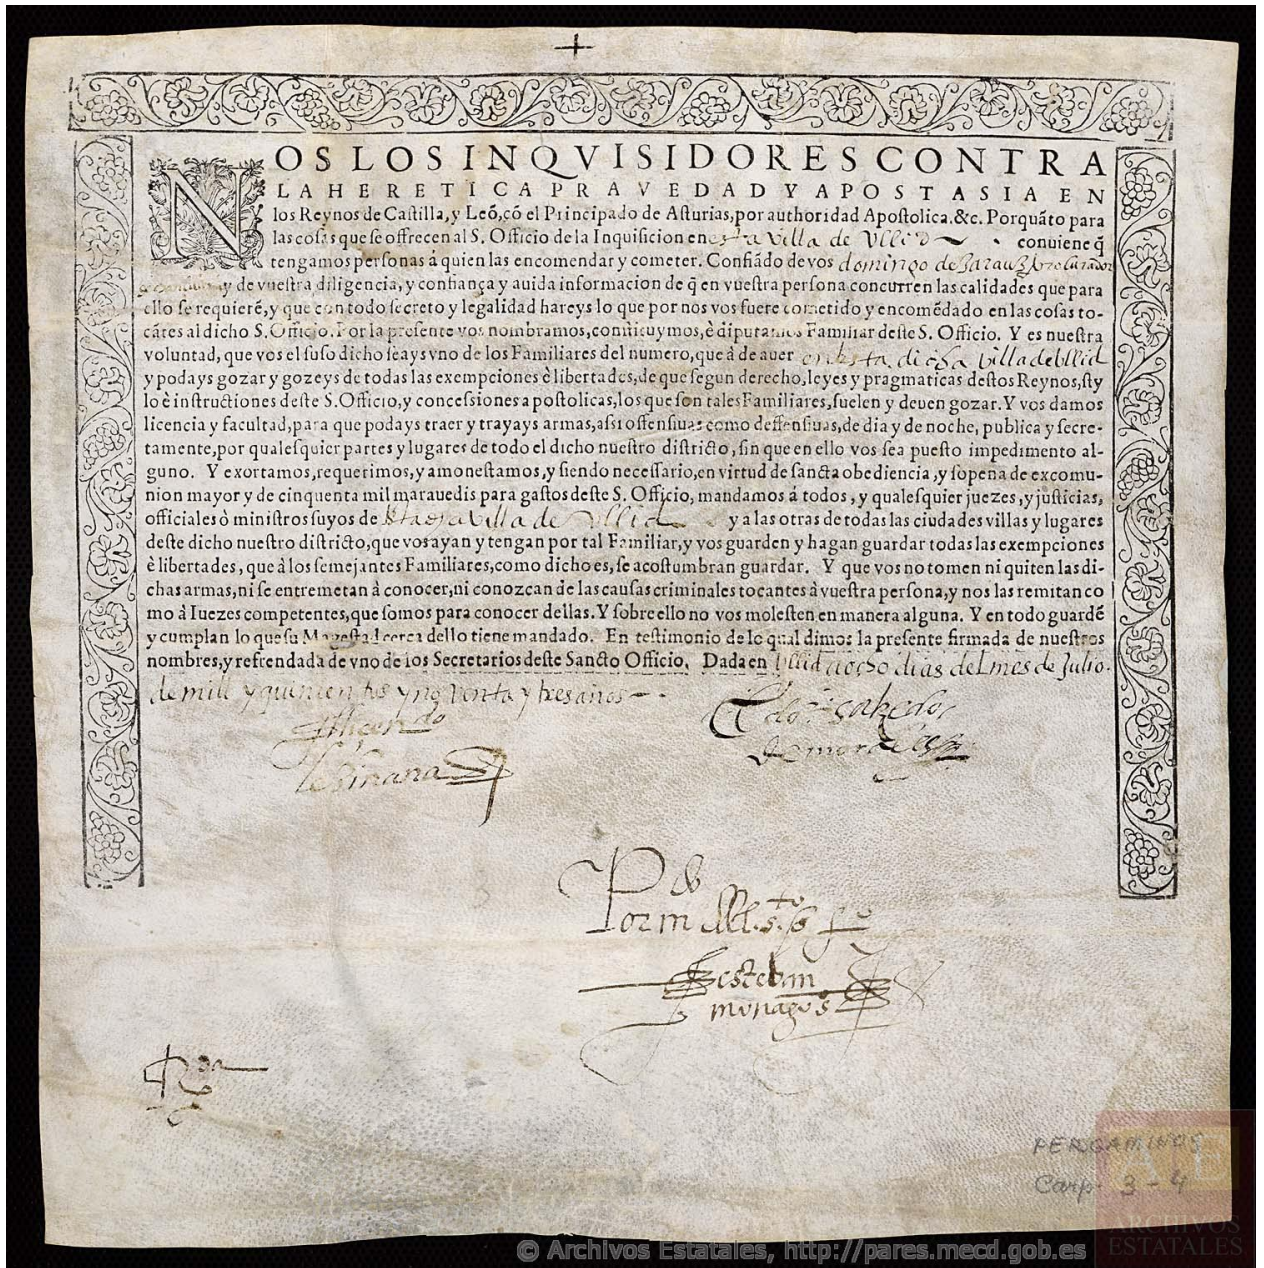 NOS LOS INQVISIDORES CONTRA
LA HERETICA PRAVEDAD Y APOSTASIA EN
los Reynos de Castilla, y Leõ, cõ el Principado de Asturias, por authoridad Apostolica. &c. Porquãto para
las cosas que se offrecen al S. Officio de la Inquisicion en esta villa de Vllid conuiene q̃
tengamos personas à quien las encomendar y cometer. Confiãdo de vos domingo de Zarauz procurador
y de vuestra diligencia, y confiança y auida informacion de q̃ en vuestra persona concurren las calidades que para
ello se requierẽ, y que con todo secreto y legalidad hareys lo que por nos vos fuere cometido y encomẽdado en las cosas to-
cãtes al dicho S. Officio. Por la presente vos nombramos, constituymos, è diputamos Familiar deste S. Officio. Y es nuestra
voluntad, que vos el suso dicho seays vno de los Familiares del numero, que à de auer en esta dicha villa de Vllid
y podays gozar y gozeys de todas las exempciones è libertades, de que segun derecho, leyes y pragmaticas destos Reynos, sty
lo è instructiones deste S. Officio, y concessiones apostolicas, los que son tales Familiares, suelen y deuen gozar. Y vos damos
licencia y facultad, para que podays traer y trayays armas, assi offensiuas como deffensiuas, de dia y de noche, publica y secre-
tamente, por qualesquier partes y lugares de todo el dicho nuestro districto, sin que en ello vos sea puesto impedimento al-
guno. Y exortamos, requerimos, y amonestamos, y siendo necessario, en virtud de sancta obediencia, y so pena de excomu-
nion mayor y de cinquenta mil marauedis para gastos deste S. Officio, mandamos á todos, y qualesquier juezes, y justicias,
officiales ò ministros suyos de esta dicha villa de Vllid y a las otras de todas las ciudades villas y lugares
deste dicho nuestro districto, que vos ayan y tengan por tal Familiar, y vos guarden y hagan guardar todas las exempciones
è libertades, que à los semejantes Familiares, como dicho es, se acostumbran guardar. Y que vos no tomen ni quiten las di-
chas armas, ni se entremetan à conocer, ni conozcan de las causas criminales tocantes à vuestra persona, y nos las remitan co
mo à Iuezes competentes, que somos para conocer dellas. Y sobre ello no vos molesten en manera alguna. Y en todo guardẽ
y cumplan lo que su Magestad cerca dello tiene mandado. En testimonio de lo qual dimos la presente firmada de nuestros
nombres, y refrendada de vno de los Secretarios deste Sancto Officio. Dada en Vllid a ocho dias del mes de Julio
de mill y quinientos y nobenta y tres años
El licendo
El dor salcedo
de morales
Por mdo del sto offo
esteban
monago
Rda
PERGAMINOS
Carp. 3-4
AE
ARCHIVOS
ESTATALES
© Archivos Estatales, http://pares.mecd.gob.es